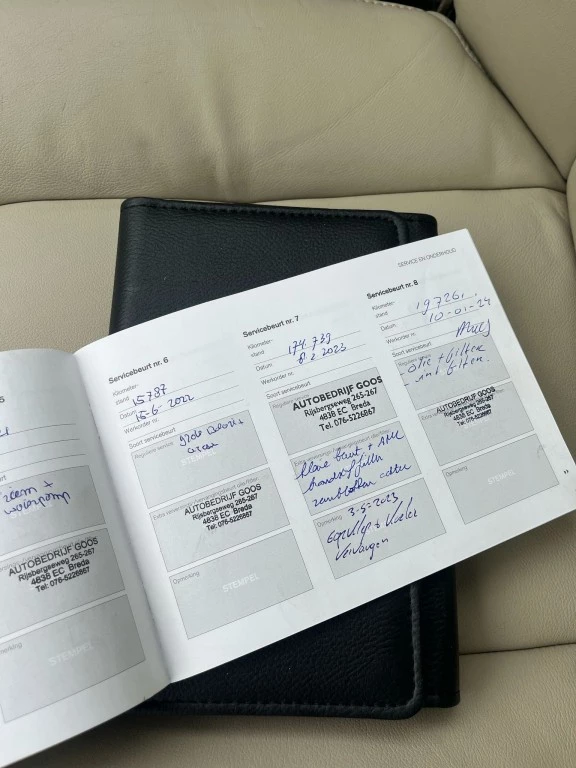 SERVICE EN ONDERHOUD
waterpomp
AUTOBEDRIJF GOOS
Rijsbergseweg 265-267
4838 EC Breda
Tel: 076-5226867
STEMPEL
Servicebeurt nr. 6
Kilometer-
stand
15787
Datum
15-6-2022
Werkorder nr.
Soort servicebeurt
Reguliere service
grote beurt
STEMPEL
AUTOBEDRIJF GOOS
Rijsbergseweg 265-267
4838 EC Breda
Tel: 076-5226867
Opmerking
STEMPEL
Servicebeurt nr. 7
Kilometer-
stand
174.739
Datum
8.2.2023
Werkorder nr.
Soort servicebeurt
AUTOBEDRIJF GOOS
Rijsbergseweg 265-267
4838 EC Breda
Tel. 076-5226867
kleine beurt +
brandstoffilter
remblokken achter
Opmerking
3-5-2023
vervangen
Servicebeurt nr. 8
Kilometer-
stand
19726,
Datum
10-01-24
Werkorder nr.
Soort servicebeurt
olie + filter
AUTOBEDRIJF GOOS
Rijsbergseweg 265-267
4838 EC Breda
Tel. 076-5226867
Opmerking